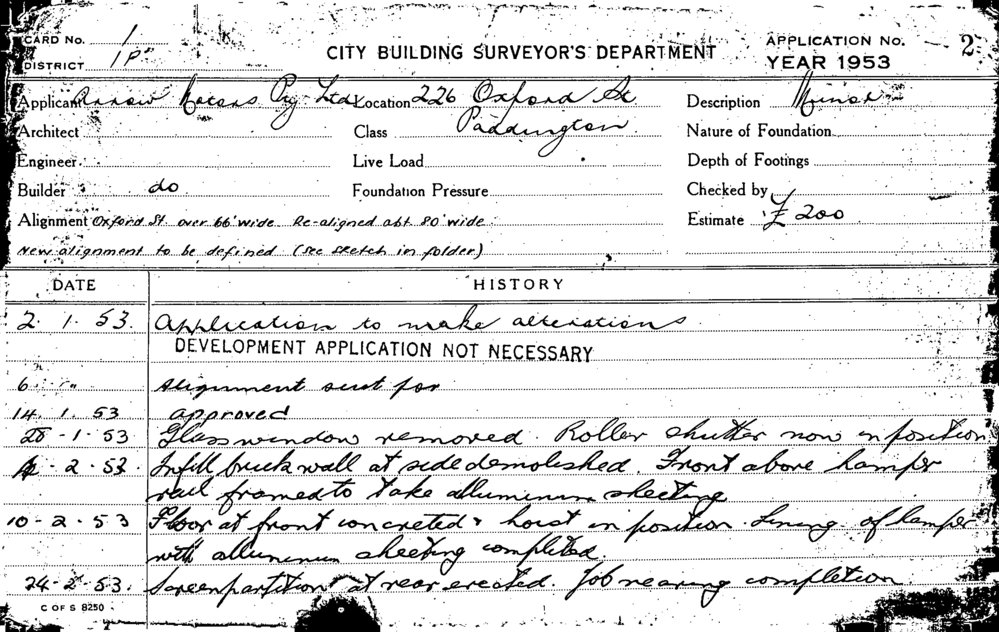 CARD No. 1
DISTRICT 1P
CITY BUILDING SURVEYOR'S DEPARTMENT
APPLICATION No. 2
YEAR 1953
Applicant Arrow Motors Pty Ltd Location 226 Oxford St Description Minor
Architect Class Paddington Nature of Foundation
Engineer Live Load Depth of Footings
Builder do Foundation Pressure Checked by
Alignment Oxford St. over 66' wide Re-aligned abt 80' wide. Estimate £200
New alignment to be defined (see sketch in folder)
DATE HISTORY
2. 1. 53. Application to make alterations
DEVELOPMENT APPLICATION NOT NECESSARY
6 " " Alignment sent for
14. 1. 53 approved
-1. 53 Glass window removed. Roller shutter now in position
- 2. 53. Infill brick wall at side demolished. Front above hamper
rail framed to take alluminum sheeting
10-2-53 Floor at front concreted & hoist in position. Lining of hamper
with alluminum sheeting completed.
24-2-53. Screen partition at rear erected. Job nearing completion.
C OF S 8250